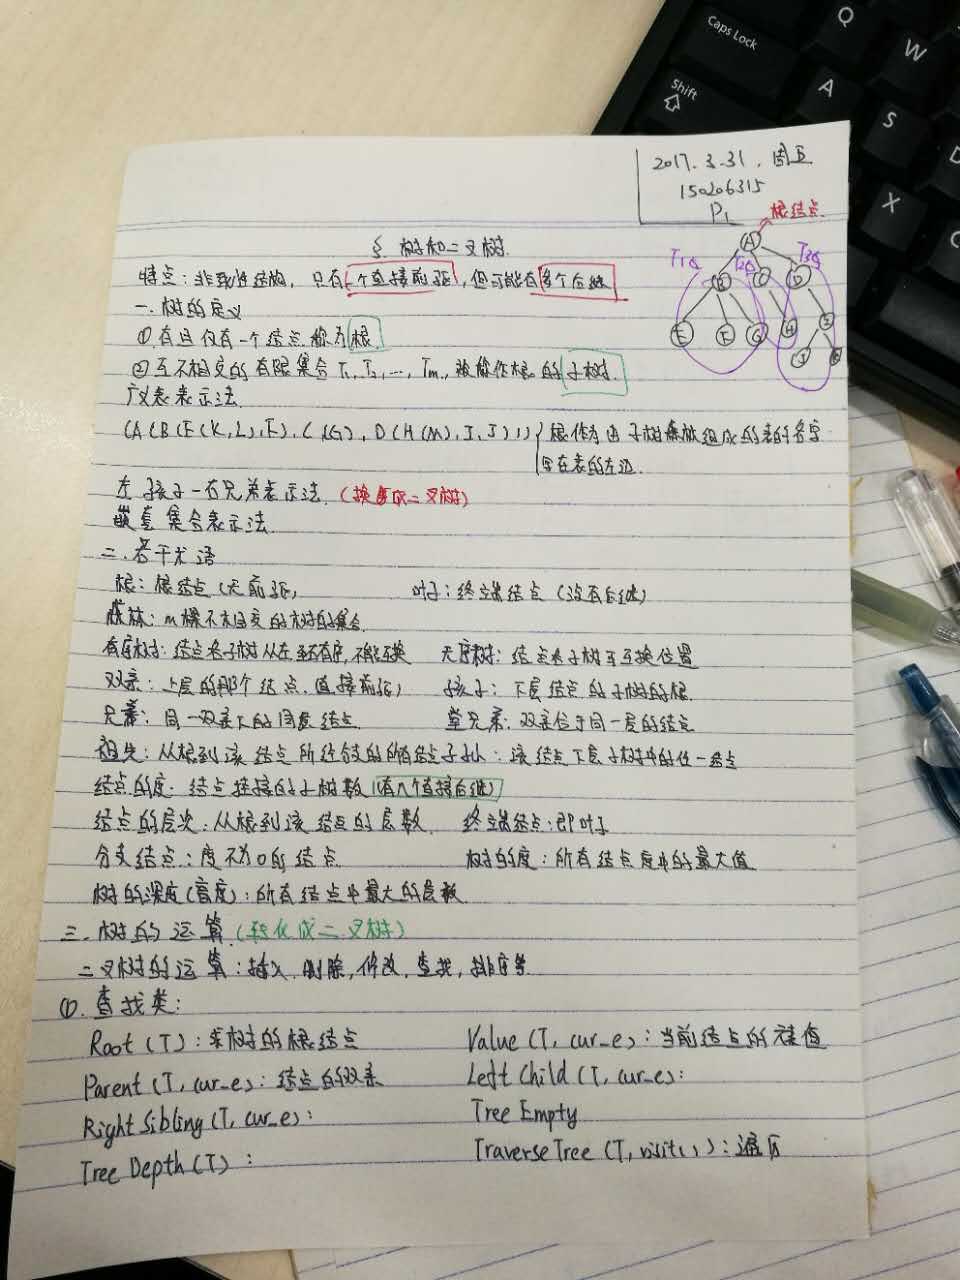 Caps Lock
Q
W
Shift
A
S
D
X
C
2017.3.31.周五
150206315
P1
根结点
A
T1
T2
T3
B
C
D
E
F
G
H
I
J
§ 树和二叉树
特点:非线性结构,只有一个直接前驱,但可能有多个后继
一.树的定义
①有且仅有一个结点称为根
②互不相交的有限集合T1,T2,…,Tm,被称作根的子树.
广义表表示法
(A(B(E(K,L),F),C(G),D(H(M),I,J)))根作为由子树森林组成的表的名字
写在表的左边
左孩子-右兄弟表示法.(换成二叉树)
嵌套集合表示法
二.若干术语
根:根结点(无前驱) 叶子:终端结点(没有后继)
森林:m棵不相交的树的集合
有序树:结点各子树从左至右有序,不能互换 无序树:结点各子树可互换位置
双亲:上层的那个结点.(直接前驱) 孩子:下层结点的子树的根
兄弟:同一双亲下的同层结点 堂兄弟:双亲位于同一层的结点
祖先:从根到该结点所经分支的所有结点 子孙:该结点下层子树中的任一结点
结点的度:结点挂接的子树数(有几个直接后继)
结点的层次:从根到该结点的层数 终端结点:即叶子
分支结点:度不为0的结点 树的度:所有结点度中的最大值
树的深度(高度):所有结点中最大的层数
三.树的运算(转化成二叉树)
二叉树的运算:插入,删除,修改,查找,排序等
①.查找类:
Root(T):求树的根结点 Value(T,cur_e):当前结点的元素值
Parent(T,cur_e):结点的双亲 Left Child(T,cur_e):
Right Sibling(T,cur_e): Tree Empty
Tree Depth(T): TraverseTree(T,visit()):遍历